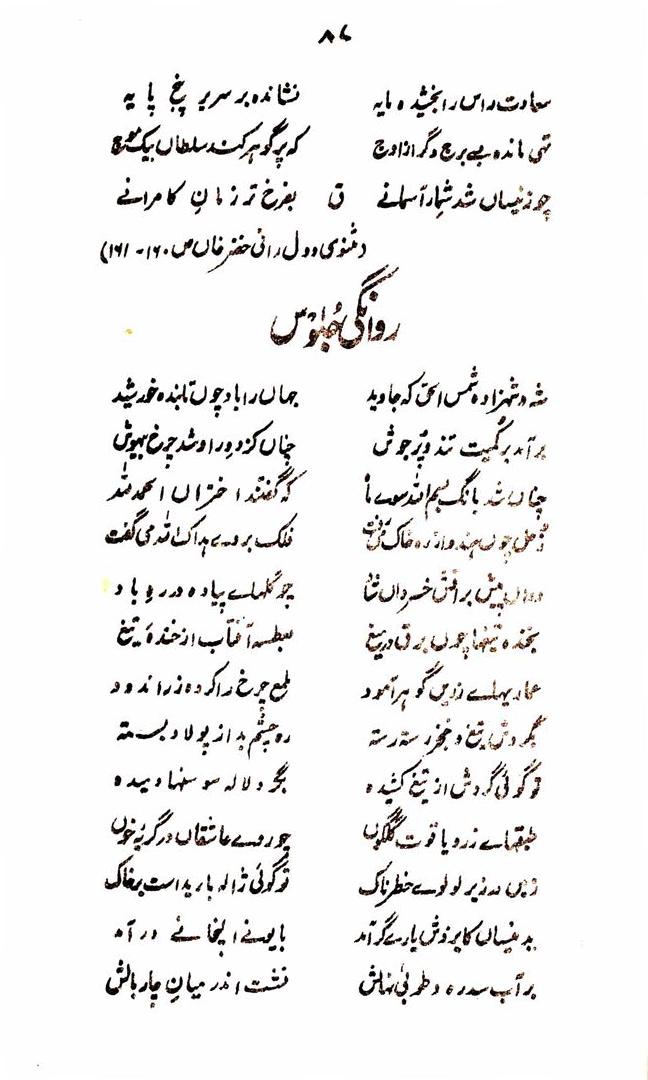 ۸۶
سعادت راس را بخشیده مایه نشانده بر سر بر پنج پایه
تہی مانده بے برج دگر از اوج که پر گوهر کند سلطاں بیک موج
چو زینساں شد شمار آسمانے ق بفرخ تر زمانِ کامرانے
(مثنوی دول رانی خضر خاں ص ۱۶۰-۱۶۱)
روانگی جلوس
شه و شهزاده شمس الحق که جاوید جہاں را باد چوں تابنده خورشید
برآمد بر کُمیت تند و پُر جوش چناں کز دورِ او شد چرخ بیہوش
چناں شد بانگ بسم اللہ سوے ما که گفتند اختراں الحمد للہ
زحل چوں ہندواز ره خاک می رفت فلک بروے ہداک اللہ می گفت
دواں پیش براقش خسرواں شاد چو گلہاے پیاده در ره باد
بخنده تیغہا چوں برق در میغ بعطسه آفتاب از خندهٔ تیغ
عماریہاے زریں گوہر آمود ملمع چرخ را کرده زر اندود
بگردش تیغ و خنجر رسته رسته رهِ چشمِ بد از پولاد بسته
تو گوئی گردش از تیغ کشیده بگرد لاله سوسنہا دمیده
طبقہاے زر و یاقوت گلگوں چو روے عاشقاں در گریۂ خوں
زمیں در زیر لولوے خطرناک تو گوئی ژاله باریداست بر خاک
بدینساں کابروش یارے گر آمد بایونے الپخانے در آمد
بر آب سدره و طوبیٰ نہالش نشست اندر میانِ چار بالش